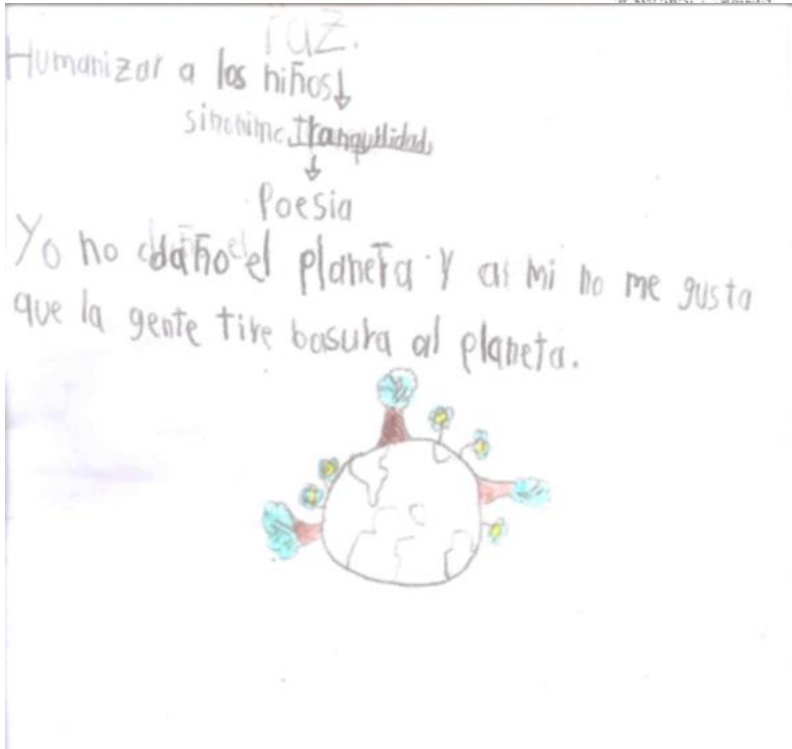 Paz.
Humanizar a los niños↓
sinonimo Tranquilidad
↓
Poesia
Yo no daño el planeta Y a mi no me gusta
que la gente tire basura al planeta.